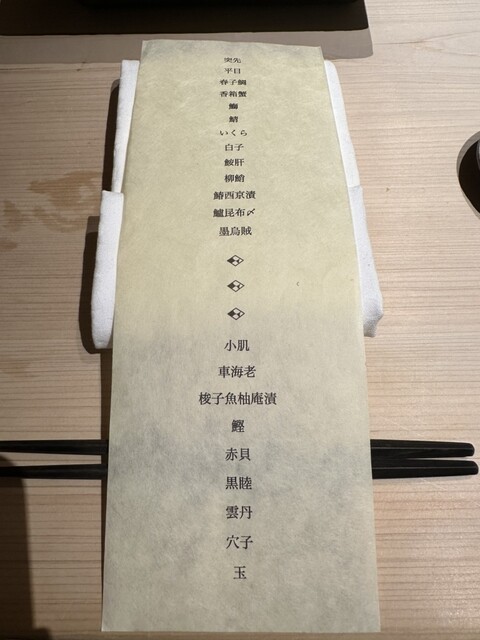 突先
平目
春子鯛
香箱蟹
鰤
鯖
いくら
白子
鮟肝
柳鮹
鰆西京漬
鱸昆布〆
墨烏賊
小肌
車海老
梭子魚柚庵漬
鰹
赤貝
黒睦
雲丹
穴子
玉